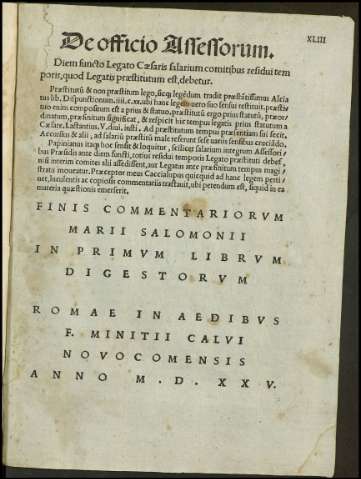 XLIII
De officio Assessorum.
Diem functo Legato Cæsaris salarium comitibus residui tem
poris, quod Legatis præstitutum est, debetur.
Præstitutũ & non præstitum lego, sicq; legẽdum tradit præstãtissimus Alcia
tus lib. Dispunctionum .iiii. c. xx. ubi hanc legem uero suo sensui restituit. præstiv
tutio enim compositum est a prius & statuo, præstitutũ ergo prius statutũ, præor/
dinatum, præfinitum significat, & respicit hic tempus legatis prius statutum a
Cæsare. Lastarius V. diui. insti. Ad præstitutum tempus præsentiam sui fecerit.
Accursius & alii, ad salariũ præstitũ male referunt sese uariis sensibus crucifdo.
Papinianus itaq; hoc sensit & loquitur, scilicet salarium integrum Assessori/
bus Præsidis ante diem functi, totius residui temporis Legato præstituti debef,
nisi interim comites alii assedissent, aut Legatus ante præstitutum tempus magi/
stratu inocuratur. Præceptor meus Caccialupus quicquid ad hanc legem perti/
net, luculentis ac copiosis commentariis tractauit, ubi petendum est, siquid in ea
materia quæstionis emerserit.
FINIS COMMENTARIORVM
MARII SALOMONII
IN PRIMVM LIBRVM
DIGESTORVM
ROMAE IN AEDIBVS
F. MINITII CALVI
NOVOCOMENSIS
ANNO M. D. XXV.